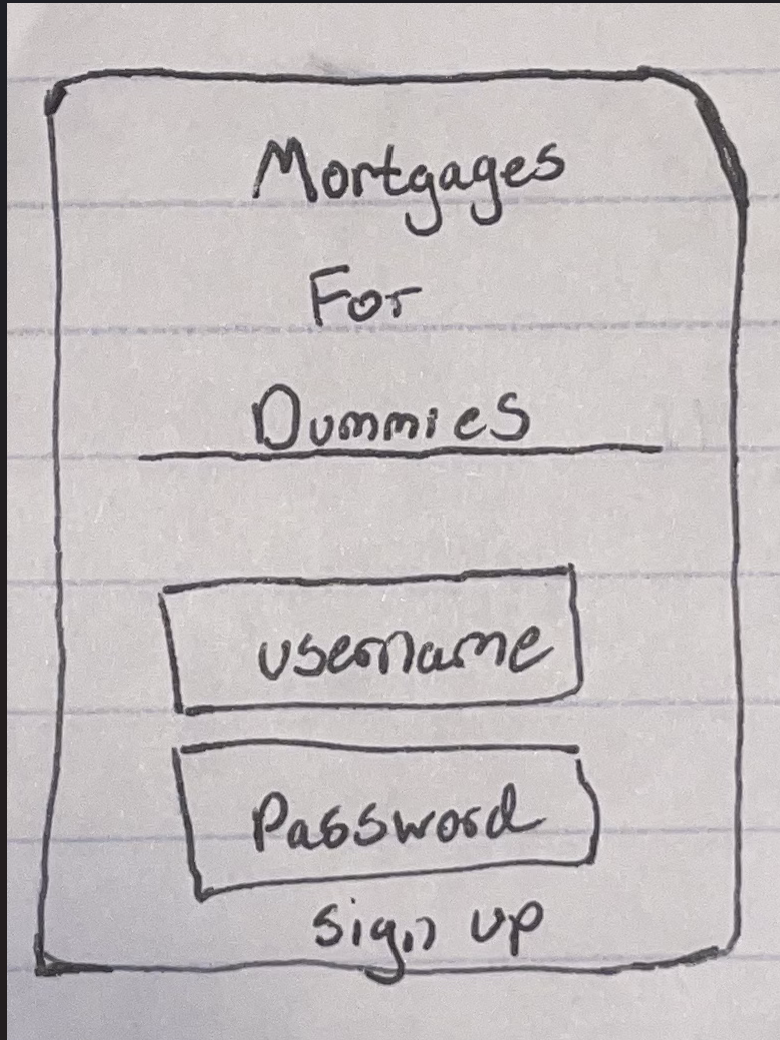 Mortgages
For
Dummies
username
Password
sign up